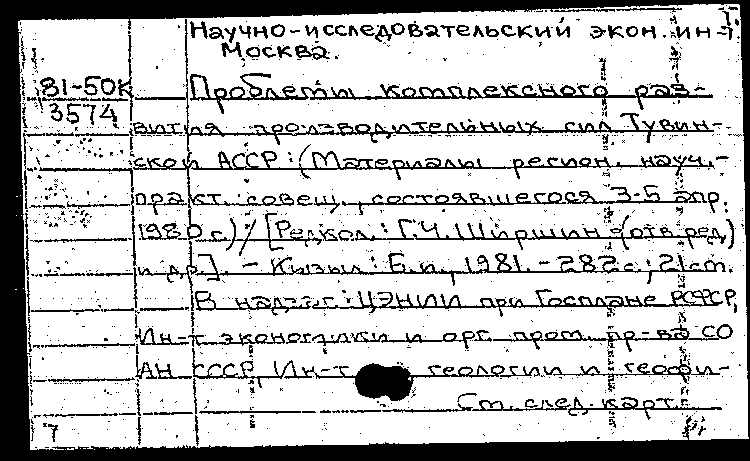 1.
Научно-исследовательский экон. ин-т.
Москва.
81-50К Проблемы комплексного раз-
3574
вития производительных сил Тувин-
ской АССР: (Материалы регион. науч.-
практ. совещ., состоявшегося 3-5 апр.
1980 г.) / [Редкол.: Г.Ч. Ширшин (отв. ред.)
и др.]. - Кызыл: Б.и., 1981. - 282 с.; 21 см.
В надзаг.: ЦЭНИИ при Госплане РСФСР,
Ин-т экономики и орг. пром. пр-ва СО
АН СССР, Ин-т геологии и геофи-
См. след. карт.
7